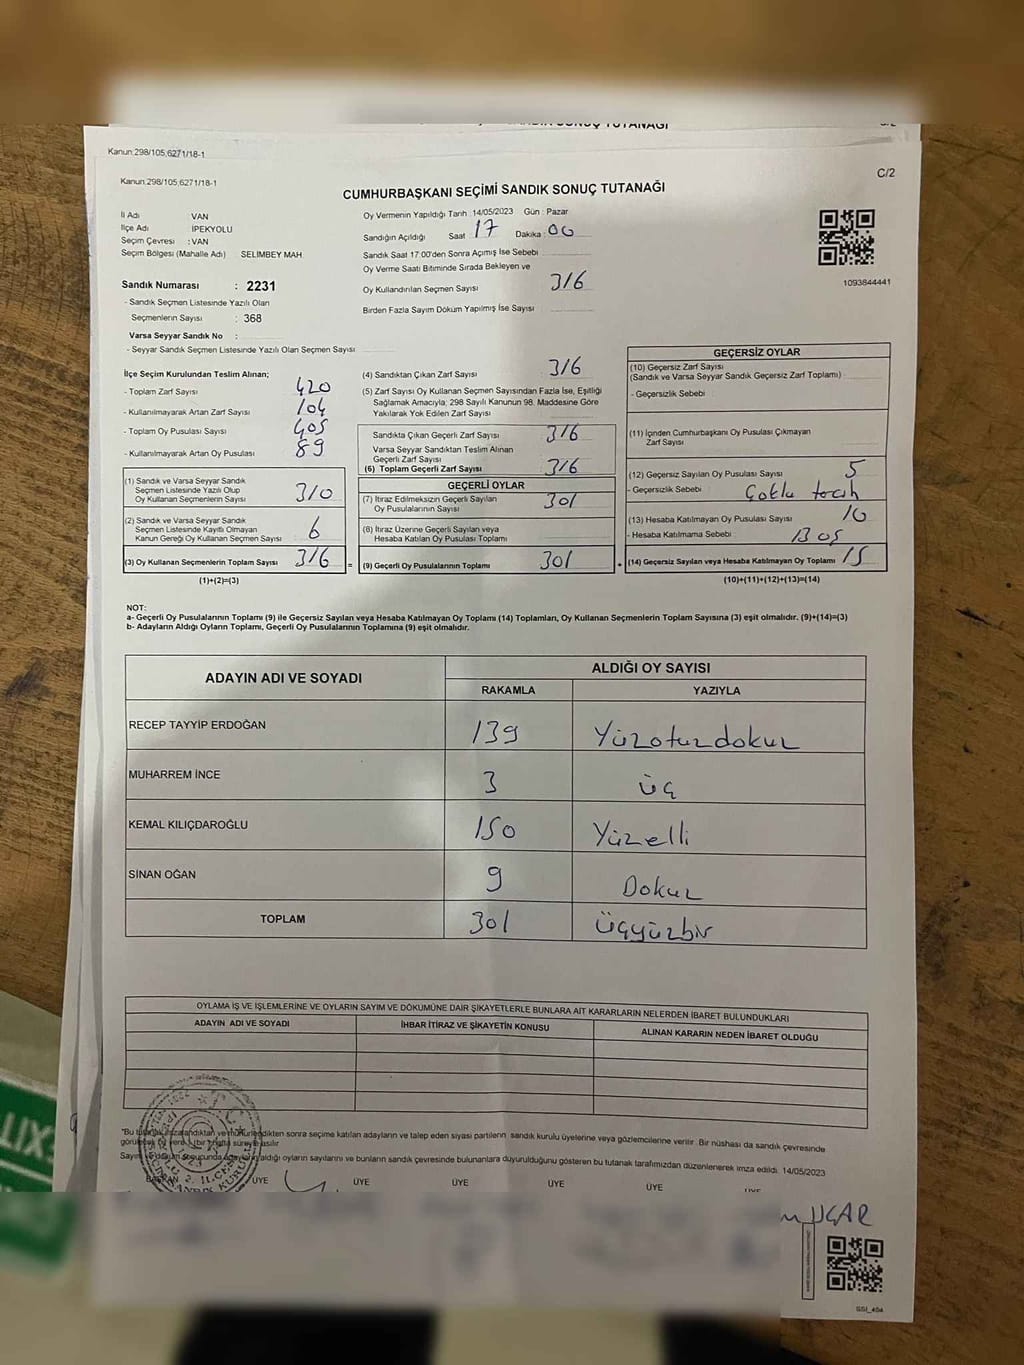 SONUÇ TUTANAĞI
Kanun:298/105,6271/18-1
Kanun:298/105,6271/18-1
C/2
CUMHURBAŞKANI SEÇİMİ SANDIK SONUÇ TUTANAĞI
İl Adı : VAN
İlçe Adı : İPEKYOLU
Seçim Çevresi : VAN
Seçim Bölgesi (Mahalle Adı) SELIMBEY MAH.
Oy Vermenin Yapıldığı Tarih :14/05/2023 Gün : Pazar
Sandığın Açıldığı Saat : 17 Dakika : 00
Sandık Saat 17:00'den Sonra Açımış İse Sebebi
Oy Verme Saati Bitiminde Sırada Bekleyen ve
Oy Kullandırılan Seçmen Sayısı 316
Birden Fazla Sayım Döküm Yapılmış İse Sayısı
1093844441
Sandık Numarası : 2231
- Sandık Seçmen Listesinde Yazılı Olan
Seçmenlerin Sayısı : 368
Varsa Seyyar Sandık No :
- Seyyar Sandık Seçmen Listesinde Yazılı Olan Seçmen Sayısı
İlçe Seçim Kurulundan Teslim Alınan;
- Toplam Zarf Sayısı 420
- Kullanılmayarak Artan Zarf Sayısı 104
- Toplam Oy Pusulası Sayısı 405
- Kullanılmayarak Artan Oy Pusulası 89
(1) Sandık ve Varsa Seyyar Sandık
Seçmen Listesinde Yazılı Olup
Oy Kullanan Seçmenlerin Sayısı 310
(2) Sandık ve Varsa Seyyar Sandık
Seçmen Listesinde Kayıtlı Olmayan
Kanun Gereği Oy Kullanan Seçmen Sayısı 6
(3) Oy Kullanan Seçmenlerin Toplam Sayısı 316 =
(1)+(2)=(3)
(4) Sandıktan Çıkan Zarf Sayısı 316
(5) Zarf Sayısı Oy Kullanan Seçmen Sayısından Fazla İse, Eşitliği
Sağlamak Amacıyla; 298 Sayılı Kanunun 98. Maddesine Göre
Yakılarak Yok Edilen Zarf Sayısı
Sandıkta Çıkan Geçerli Zarf Sayısı 316
Varsa Seyyar Sandıktan Teslim Alınan
Geçerli Zarf Sayısı
(6) Toplam Geçerli Zarf Sayısı 316
GEÇERLİ OYLAR
(7) İtiraz Edilmeksizin Geçerli Sayılan
Oy Pusulalarının Sayısı 301
(8) İtiraz Üzerine Geçerli Sayılan veya
Hesaba Katılan Oy Pusulası Toplamı
(9) Geçerli Oy Pusulalarının Toplamı 301 +
GEÇERSİZ OYLAR
(10) Geçersiz Zarf Sayısı
(Sandık ve Varsa Seyyar Sandık Geçersiz Zarf Toplamı)
- Geçersizlik Sebebi
(11) İçinden Cumhurbaşkanı Oy Pusulası Çıkmayan
Zarf Sayısı
(12) Geçersiz Sayılan Oy Pusulası Sayısı 5
- Geçersizlik Sebebi Çoklu tercih
(13) Hesaba Katılmayan Oy Pusulası Sayısı 10
- Hesaba Katılmama Sebebi Boş
(14) Geçersiz Sayılan veya Hesaba Katılmayan Oy Toplamı 15
(10)+(11)+(12)+(13)=(14)
NOT:
a- Geçerli Oy Pusulalarının Toplamı (9) ile Geçersiz Sayılan veya Hesaba Katılmayan Oy Toplamı (14) Toplamları, Oy Kullanan Seçmenlerin Toplam Sayısına (3) eşit olmalıdır. (9)+(14)=(3)
b- Adayların Aldığı Oyların Toplamı, Geçerli Oy Pusulalarının Toplamına (9) eşit olmalıdır.
ADAYIN ADI VE SOYADI
ALDIĞI OY SAYISI
RAKAMLA YAZIYLA
RECEP TAYYİP ERDOĞAN 139 Yüzotuzdokuz
MUHARREM İNCE 3 Üç
KEMAL KILIÇDAROĞLU 150 Yüzelli
SİNAN OĞAN 9 Dokuz
TOPLAM 301 Üçyüzbir
OYLAMA İŞ VE İŞLEMLERİNE VE OYLARIN SAYIM VE DÖKÜMÜNE DAİR ŞİKAYETLERLE BUNLARA AİT KARARLARIN NELERDEN İBARET BULUNDUKLARI
ADAYIN ADI VE SOYADI İHBAR İTİRAZ VE ŞİKAYETİN KONUSU ALINAN KARARIN NEDEN İBARET OLDUĞU
"Bu imzalandıktan ve mühürlendikten sonra seçime katılan adayların ve talep eden siyasi partilerin sandık kurulu üyelerine veya gözlemcilerine verilir. Bir nüshası da sandık çevresinde
bir hafta süreyle asılır
Sayım aldığı oyların sayılarını ve bunların sandık çevresinde bulunanlara duyurulduğunu gösteren bu tutanak tarafımızdan düzenlenerek imza edildi. 14/05/2023
BAŞKAN ÜYE ÜYE ÜYE ÜYE ÜYE ÜYE
UÇAR
SSİ_404
EXIT